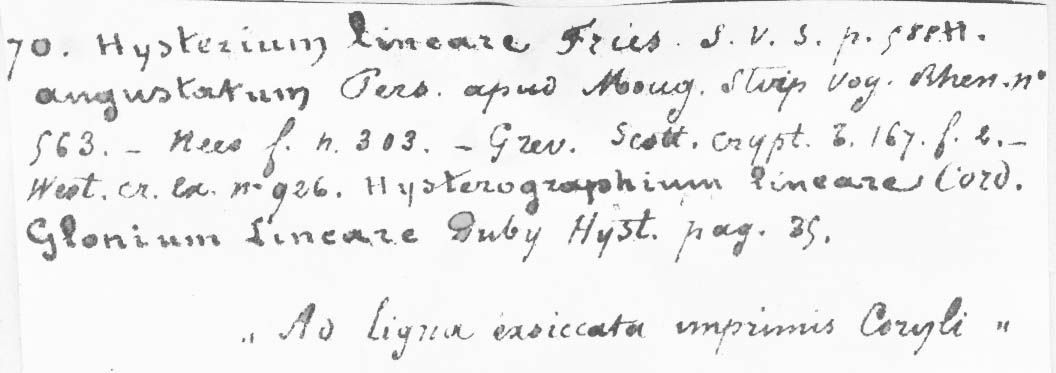 70. Hysterium lineare Fries. S. V. S. p. 588 H.
angustatum Pers. apud Moug. Stirp Vog. Rhen. nº
563. – Nees f. n. 303. – Grev. Scott. crypt. t. 167. f. 2. –
West. cr. ex. nº 926. Hysterographium lineare Cord.
Glonium Lineare Duby Hyst. pag. 35.
„ Ad ligna exsiccata imprimis Coryli "